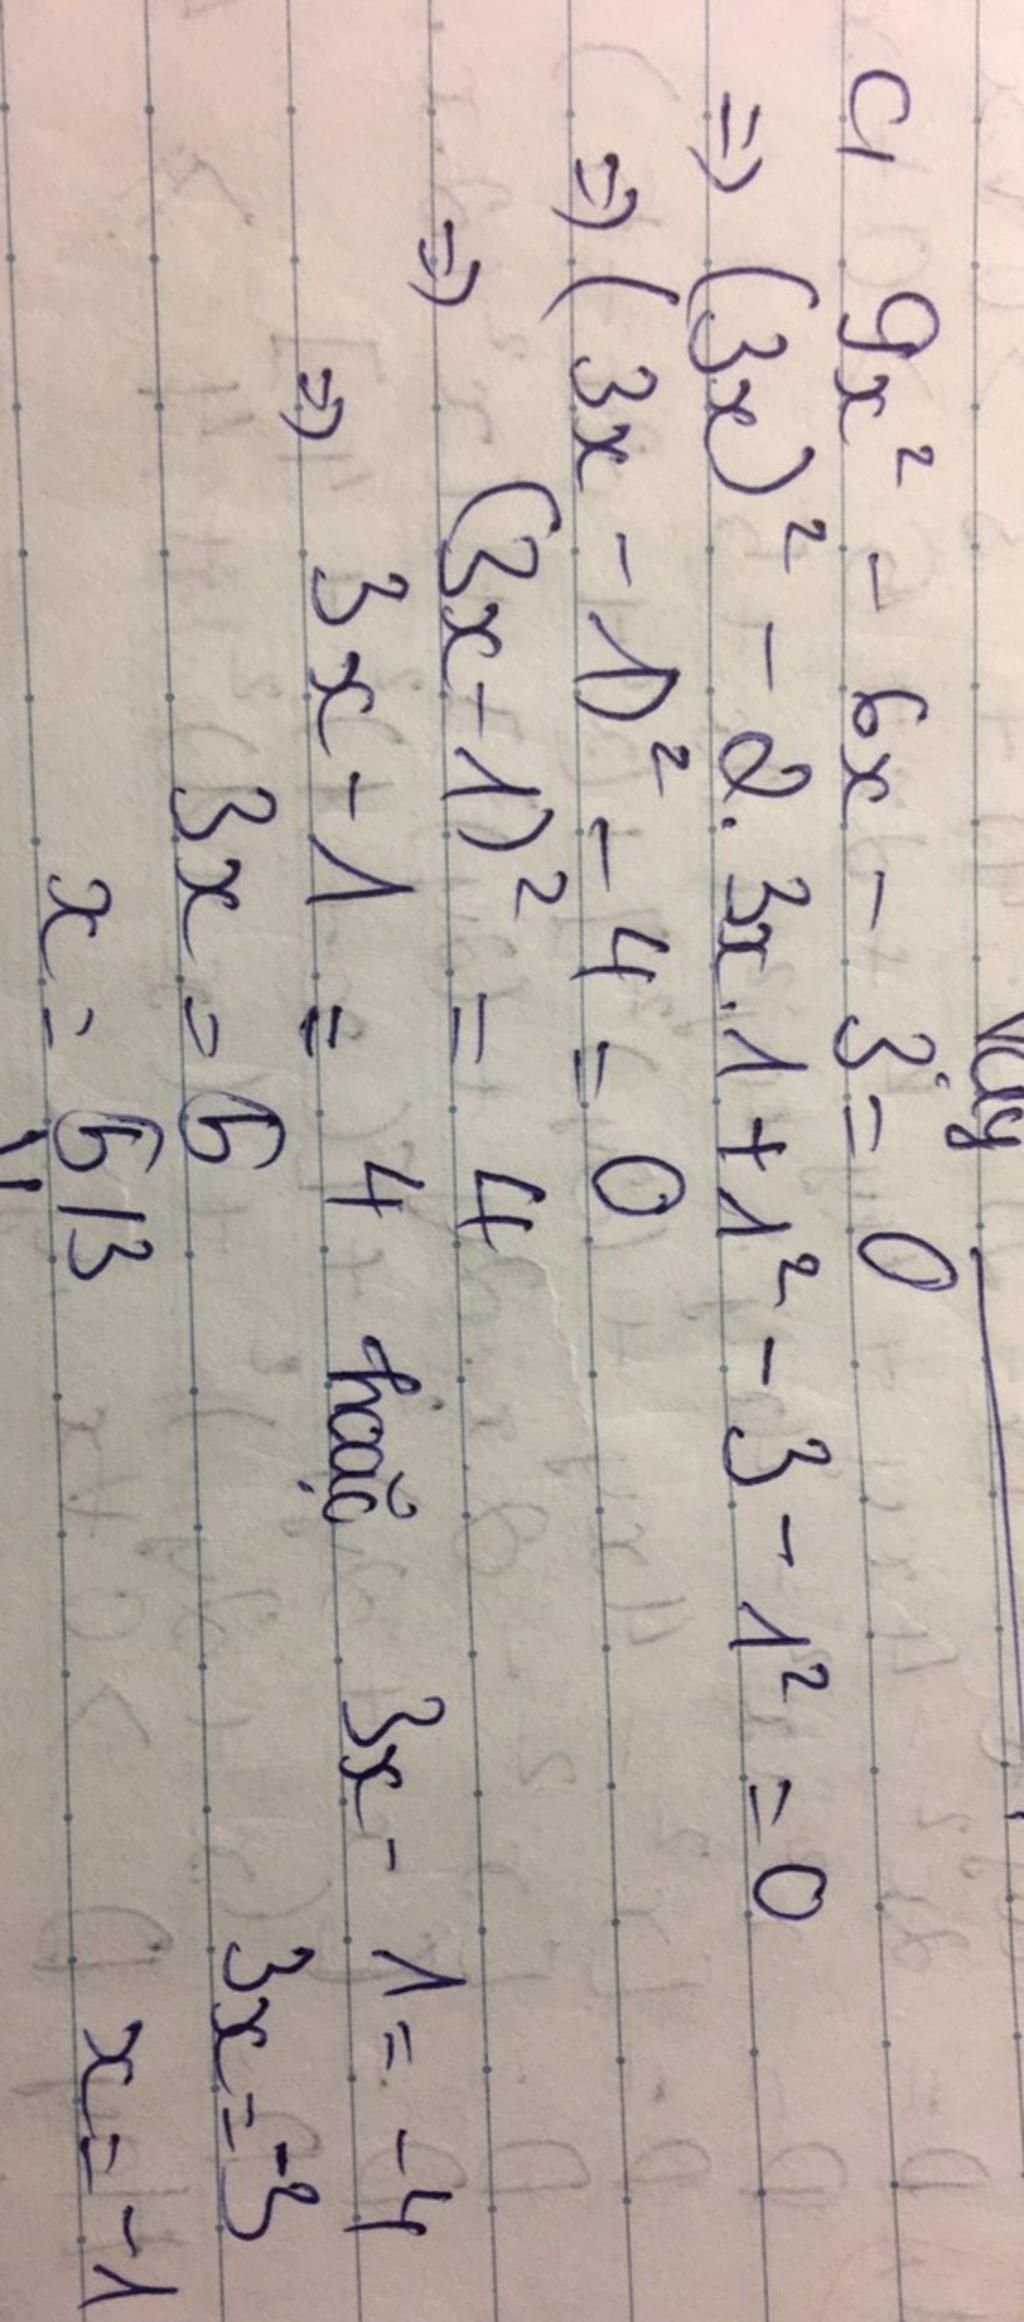 Vậy
c, 9x² - 6x - 3 = 0
=> (3x)² - 2.3x.1 + 1² - 3 - 1² = 0
=> (3x - 1)² - 4 = 0
=> (3x - 1)² = 4
=> 3x - 1 = 4 hoặc 3x - 1 = -4
3x = 5 3x = -3
x = 5/3 x = -1